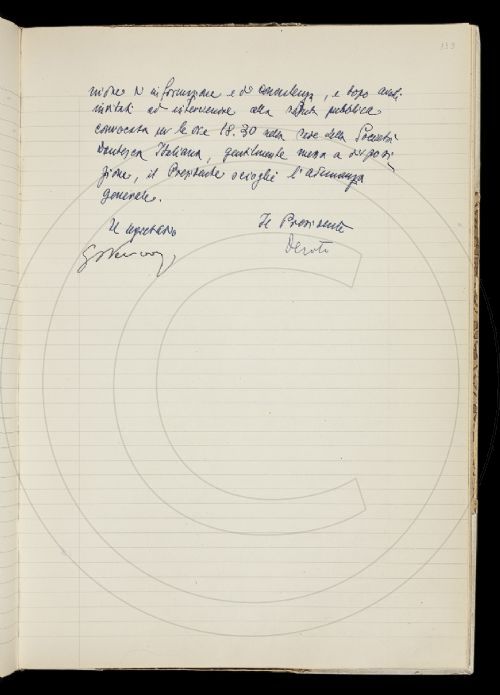 133
nione di informazione e di consulenza, e dopo averli
invitati ad intervenire alla seduta pubblica
convocata per le ore 18.30 nella sede della Società
Dantesca Italiana, gentilmente messa a disposi
zione, il Presidente scioglie l'adunanza
generale.
Il segretario Il Presidente
Devoto